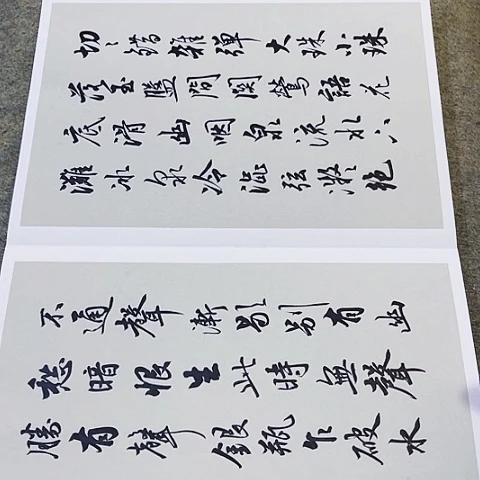 切〻錯雜彈大珠小珠
落玉盤間関鶯語花
底滑幽咽泉流水下
灘冰泉冷澀弦凝絕
不通聲漸歇别有幽
愁暗恨生此時無聲
勝有聲銀瓶乍破水